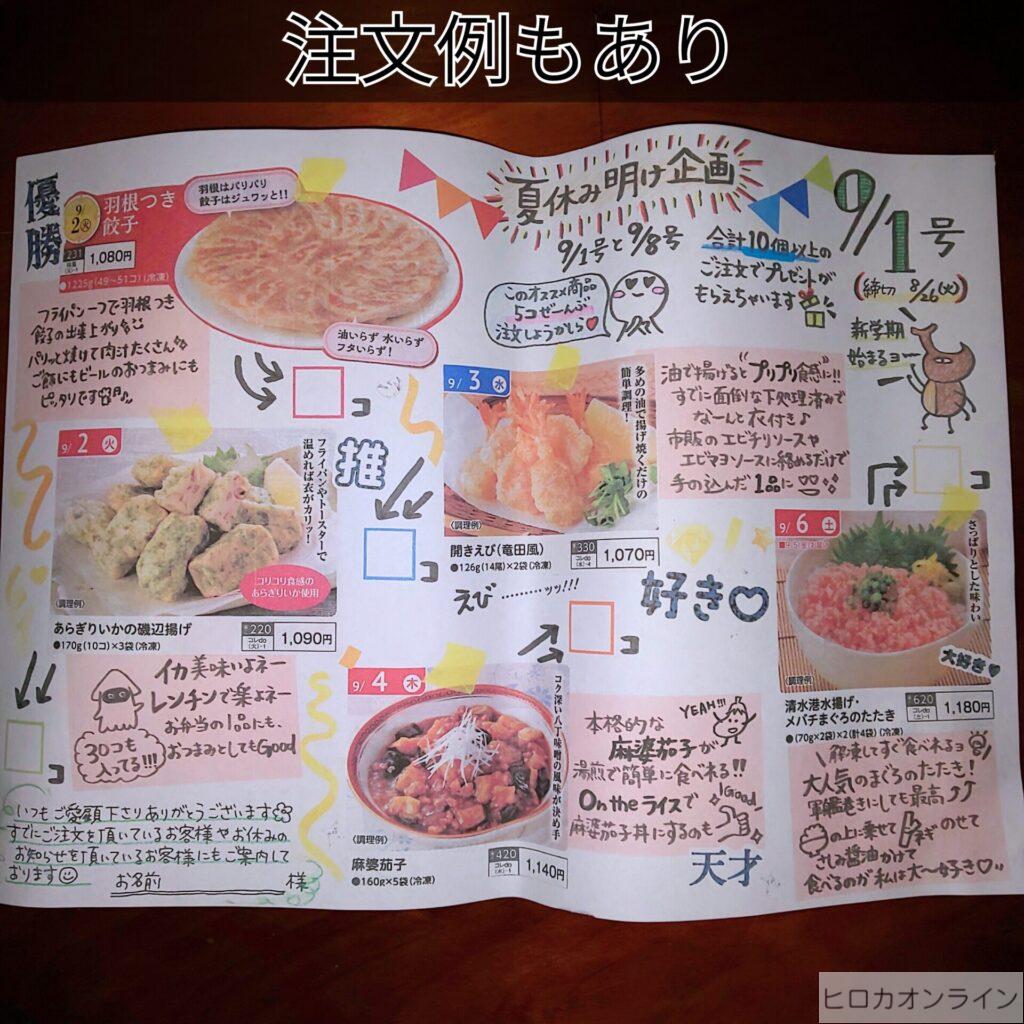 注文例もあり
優勝
9/2火
羽根つき
餃子
231
1,080円
●1225g(49〜51コ)(冷凍)
羽根はパリパリ
餃子はジュワッと!!
油いらず 水いらず
フタいらず!
フライパン一つで羽根つき
餃子の出来上がり
パリッと焼けて肉汁たくさん
ご飯にもビールのおつまみにも
ピッタリです
コ
夏休み明け企画
9/1号と9/8号
合計10個以上の
ご注文でプレゼントが
もらえちゃいます
このオススメ商品
5コぜーんぶ
注文しようかしら♥
9/1号
(締切 8/26(火))
新学期
始まるヨー
9/2火
フライパンやトースターで
温めれば衣がカリッ!
コリコリ食感の
あらぎりいか使用
〈調理例〉
あらぎりいかの磯辺揚げ
●170g(10コ)×3袋(冷凍)
*220
コレdo
(火)-1
1,090円
推
コ
イカ美味いよネー
レンチンで楽よネー
お弁当の1品にも、
おつまみとしてもGood
30コも
入ってる!!!
コ
9/3水
多めの油で揚げ焼くだけの
簡単調理!
〈調理例〉
開きえび(竜田風)
●126g(14尾)×2袋(冷凍)
*330
コレdo
(水)-4
1,070円
えび………ッッ!!!
油で揚げると"プリプリ食感に!!
すでに面倒な下処理済みで
なーんと衣付き♪
市販のエビチリソースや
エビマヨソースに絡めるだけで
手の込んだ1品に
コ
好き♡
コ
9/4木
コク深い八丁味噌の風味が決め手
〈調理例〉
麻婆茄子
●160g×5袋(冷凍)
*420
コレdo
1,140円
本格的な
麻婆茄子が
湯煎で簡単に食べれる!!
On theライスで
麻婆茄子丼にするのも
YEAH!!!
Good
天才
9/6土
さっぱりとした味わい
〈調理例〉
大好き♥
清水港水揚げ・
メバチまぐろのたたき
●(70g×2袋)×2(計4袋)(冷凍)
*620
コレdo
(土)-1
1,180円
解凍してすぐ食べれるヨ
大人気のまぐろのたたき!
軍艦巻きにしても最高
の上に乗せて ネギのせて
さしみ醤油かけて
食べるのが私は大〜好き♡
いつもご愛顧下さりありがとうございます
すでにご注文を頂いているお客様やお休みの
お知らせを頂いているお客様にもご案内して
おります
お名前 様
ヒロカオンライン